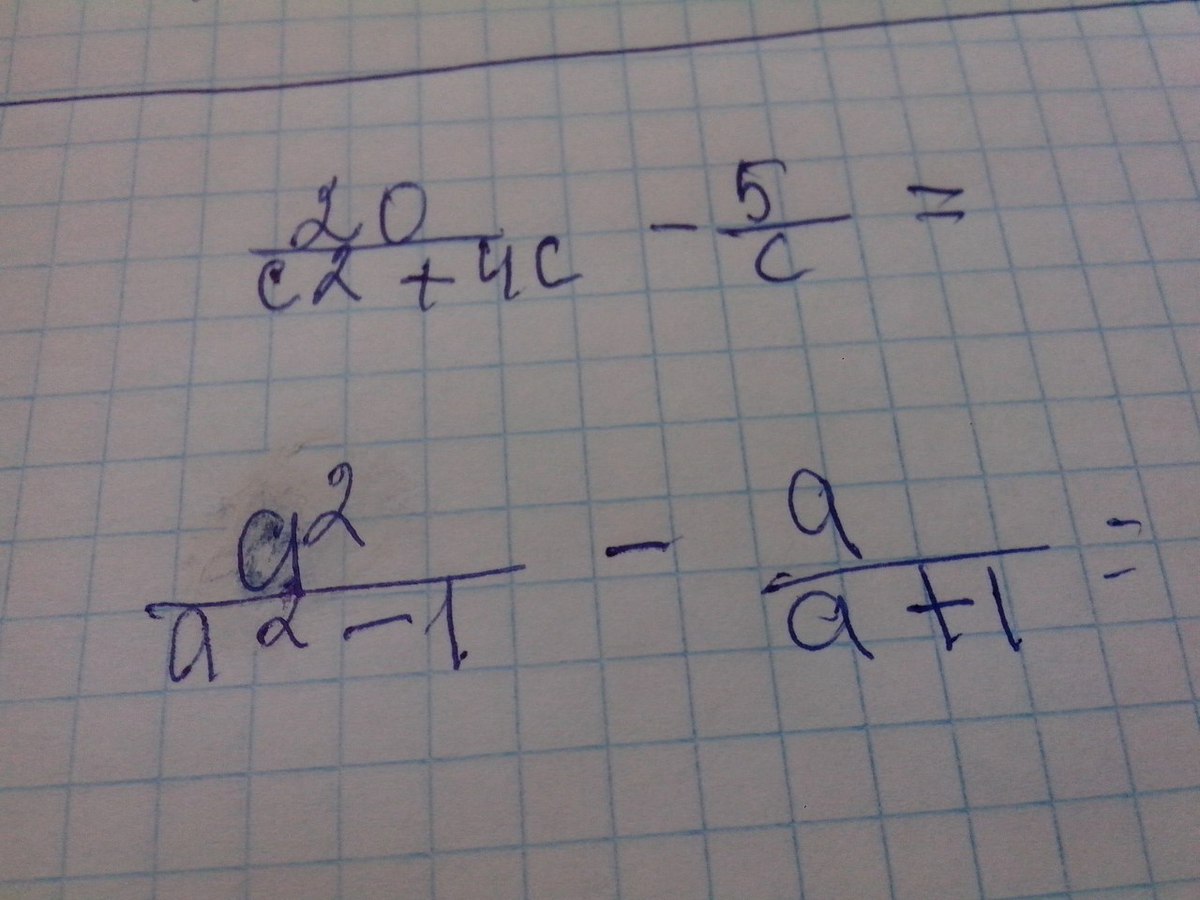 20/(c2 + 4c) - 5/c =
a²/(a² - 1) - a/(a + 1) =